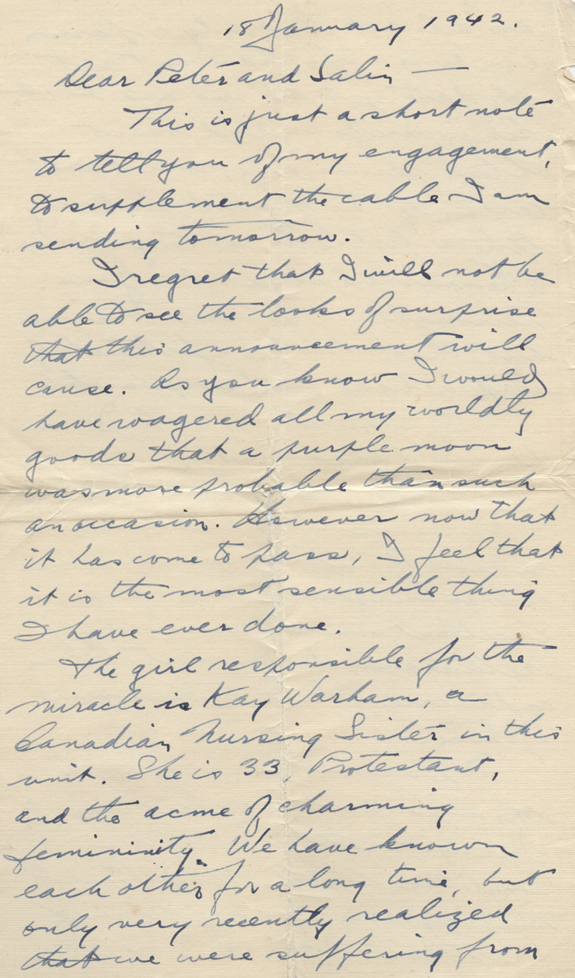 18 January 1942.
Dear Peter and Salin —
This is just a short note
to tell you of my engagement,
to supplement the cable I am
sending tomorrow.
I regret that I will not be
able to see the looks of surprise
that this announcement will
cause. As you know I would
have wagered all my worldly
goods that a purple moon
was more probable than such
an occasion. However now that
it has come to pass, I feel that
it is the most sensible thing
I have ever done.
The girl responsible for the
miracle is Kay Warham, a
Canadian Nursing Sister in this
unit. She is 33, Protestant,
and the acme of charming
femininity. We have known
each other for a long time, but
only very recently realized
that we were suffering from